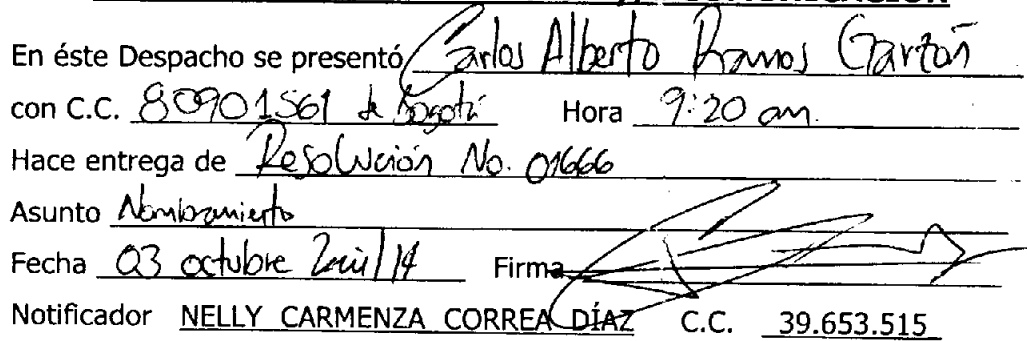 En éste Despacho se presentó Carlos Alberto Ramos Garzón
con C.C. 80901561 de Bogotá Hora 9:20 am.
Hace entrega de Resolución No. 01666
Asunto Nombramiento
Fecha 03 octubre 2mil/14 Firma
Notificador NELLY CARMENZA CORREA DÍAZ C.C. 39.653.515